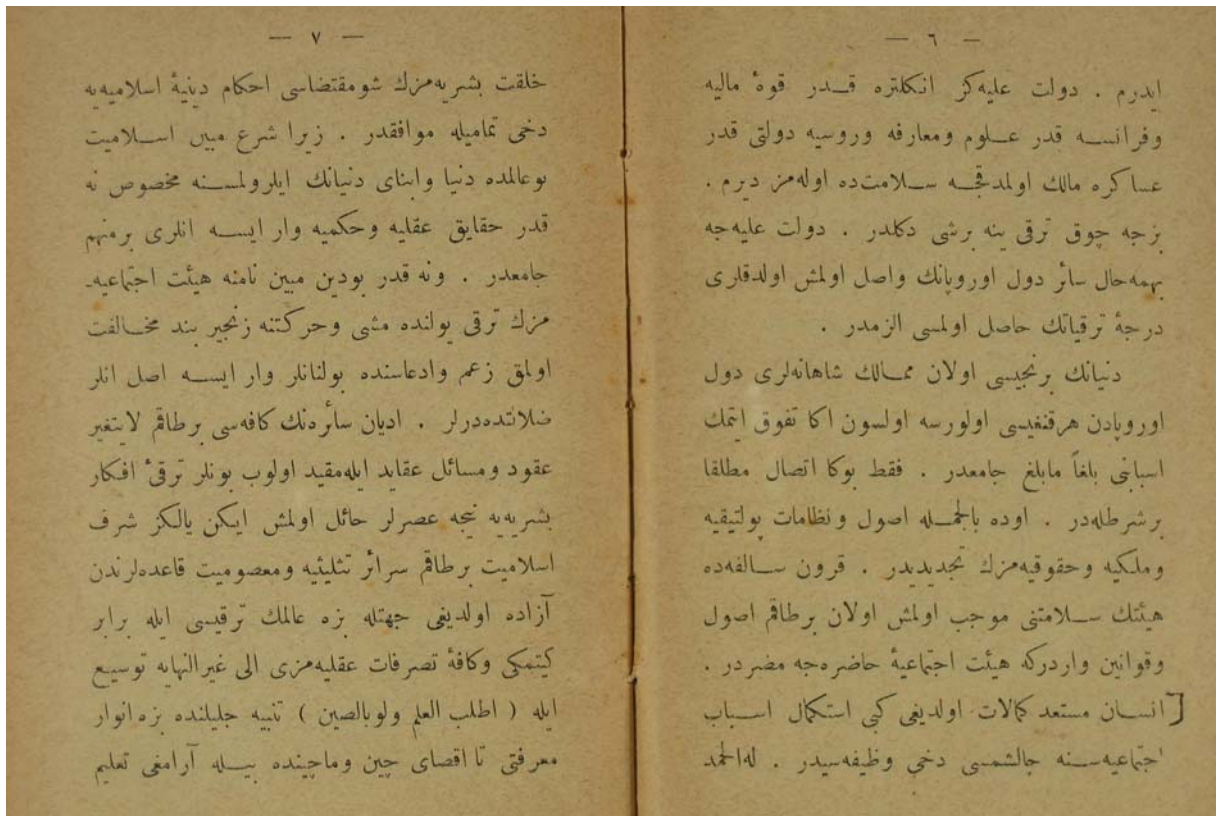 — ٦ —
ایدرم . دولت علیه‌کز انکلتره قدر قوهٔ مالیه
وفرانسه قدر علوم ومعارفه وروسیه دولتی قدر
عساکره مالك اولمدقجه سلامت‌ده اوله‌مز دیرم .
بزجه چوق ترقی ینه برشی دکلدر . دولت علیه‌جه
بهمه‌حال سائر دول اوروپانك واصل اولمش اولدقلری
درجهٔ ترقیاتك حاصل اولمسی الزمدر .
دنیانك برنجیسی اولان ممالك شاهانه‌لری دول
اوروپادن هرقنغیسی اولورسه اولسون اکا تفوق ایتمك
اسبابنی بلغاً مابلغ جامعدر . فقط بوکا اتصال مطلقا
برشرطله‌در . اوده بالجمله اصول ونظامات پولتیقیه
وملکیه وحقوقیه‌مزك تجدیدیدر . قرون سالفه‌ده
هیئتك سلامتنی موجب اولمش اولان برطاقم اصول
وقوانین واردرکه هیئت اجتماعیهٔ حاضره‌جه مضردر .
[ انسان مستعد کمالات اولدیغی کبی استکمال اسباب
اجتماعیه‌سنه چالشمسی دخی وظیفه‌سیدر . له‌الحمد
— ٧ —
خلقت بشریه‌مزك شومقتضاسی احکام دینیهٔ اسلامیه‌یه
دخی تمامیله موافقدر . زیرا شرع مبین اسلامیت
بوعالمده دنیا وابنای دنیانك ایلرولمسنه مخصوص نه
قدر حقایق عقلیه وحکمیه وار ایسه انلری برمنهم
جامعدر . ونه قدر بودین مبین نامنه هیئت اجتماعیه‌ـ
مزك ترقی یولنده مشی وحرکتنه زنجیر بند مخالفت
اولمق زعم وادعاسنده بولنانلر وار ایسه اصل انلر
ضلالتده‌درلر . ادیان سائره‌نك کافه‌سی برطاقم لایتغیر
عقود ومسائل عقاید ایله‌مقید اولوب بونلر ترقیٔ افکار
بشریه‌یه نیجه عصرلر حائل اولمش ایکن یالکز شرف
اسلامیت برطاقم سرائر تثلیثیه ومعصومیت قاعده‌لرندن
آزاده اولدیغی جهتله بزه عالمك ترقیسی ایله برابر
کیتمکی وکافهٔ تصرفات عقلیه‌مزی الی غیرالنهایه توسیع
ایله ( اطلب العلم ولوبالصین ) تنبیه جلیلنده بزه انوار
معرفتی تا اقصای چین وماچینده بیله آرامغی تعلیم